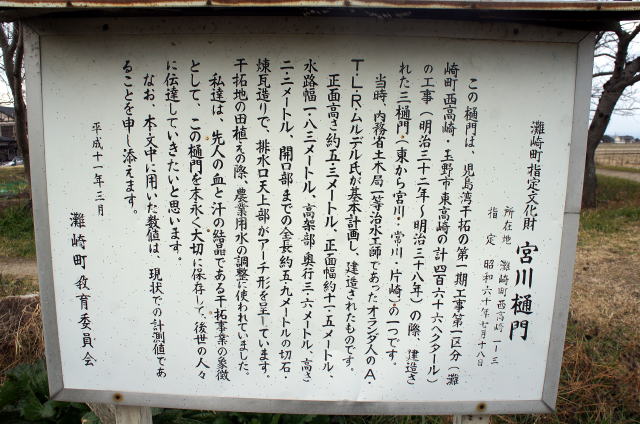 灘崎町指定文化財 宮川樋門
所在地 灘崎町西高崎一ー三
指定 昭和六十年七月十八日
この樋門は、児島湾干拓の第一期工事第一区分(灘
崎町西高崎・玉野市東高崎の計四百六十六ヘクタール)
の工事(明治三十二年〜明治三十八年)の際、建造さ
れた三樋門(東から宮川・常川・片崎)の一つです。
当時、内務省土木局一等治水工師であったオランダ人のA・
T・L・R・ムルデル氏が基本計画し、建造されたものです。
正面高さ約五・三メートル、正面幅約十一・五メートル、
水路幅一・八三メートル、高架部奥行三・六メートル、高さ
二・二メートル、開口部までの全長約五・九メートルの切石・
煉瓦造りで、排水口天上部がアーチ形を呈しています。
干拓地の田植えの際、農業用水の調整に使われていました。
私達は、先人の血と汗の結晶である干拓事業の象徴
として、この樋門を末永く大切に保存して、後世の人々
に伝達していきたいと思います。
なお、本文中に用いた数値は、現状での計測値であ
ることを申し添えます。
平成十一年三月
灘崎町教育委員会